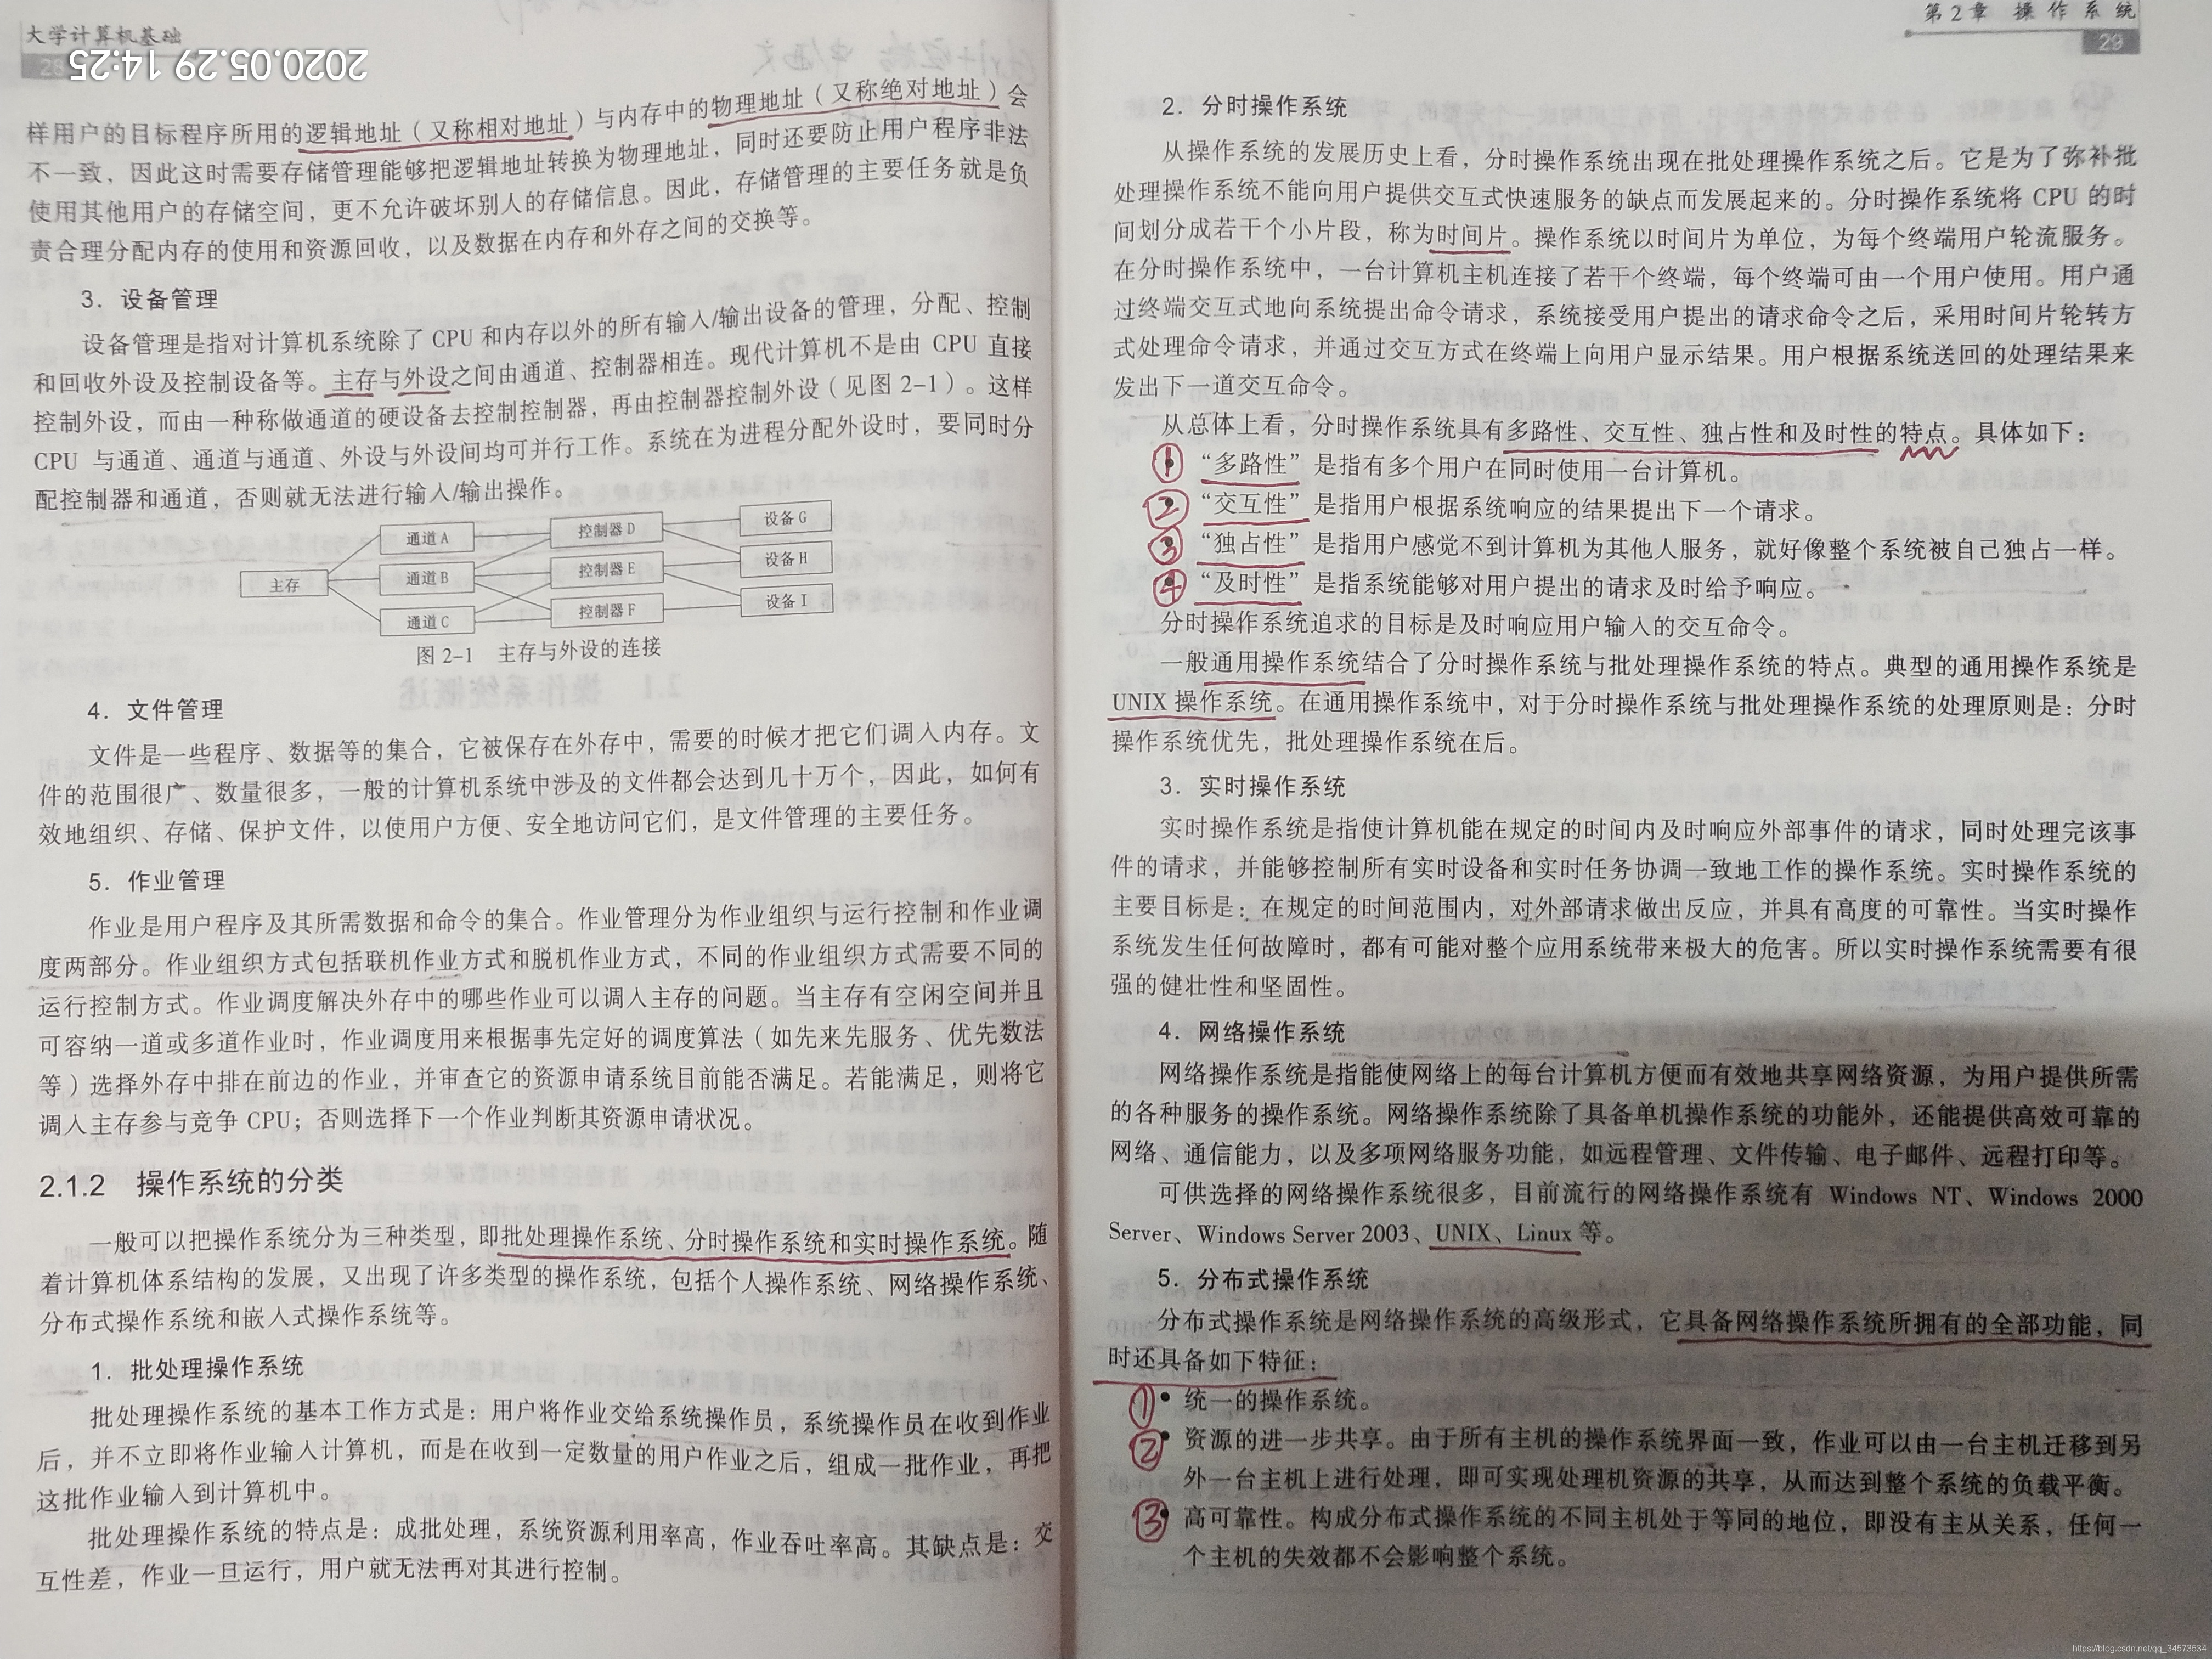 大学计算机基础
28
2020.05.29 14:25
样用户的目标程序所用的逻辑地址（又称相对地址）与内存中的物理地址（又称绝对地址）会
不一致，因此这时需要存储管理能够把逻辑地址转换为物理地址，同时还要防止用户程序非法
使用其他用户的存储空间，更不允许破坏别人的存储信息。因此，存储管理的主要任务就是负
责合理分配内存的使用和资源回收，以及数据在内存和外存之间的交换等。
3．设备管理
设备管理是指对计算机系统除了 CPU 和内存以外的所有输入/输出设备的管理，分配、控制
和回收外设及控制设备等。主存与外设之间由通道、控制器相连。现代计算机不是由 CPU 直接
控制外设，而由一种称做通道的硬设备去控制控制器，再由控制器控制外设（见图 2-1）。这样
CPU 与通道、通道与通道、外设与外设间均可并行工作。系统在为进程分配外设时，要同时分
配控制器和通道，否则就无法进行输入/输出操作。
主存
通道 A
通道 B
通道 C
控制器 D
控制器 E
控制器 F
设备 G
设备 H
设备 I
图 2-1 主存与外设的连接
4．文件管理
文件是一些程序、数据等的集合，它被保存在外存中，需要的时候才把它们调入内存。文
件的范围很广、数量很多，一般的计算机系统中涉及的文件都会达到几十万个，因此，如何有
效地组织、存储、保护文件，以使用户方便、安全地访问它们，是文件管理的主要任务。
5．作业管理
作业是用户程序及其所需数据和命令的集合。作业管理分为作业组织与运行控制和作业调
度两部分。作业组织方式包括联机作业方式和脱机作业方式，不同的作业组织方式需要不同的
运行控制方式。作业调度解决外存中的哪些作业可以调入主存的问题。当主存有空闲空间并且
可容纳一道或多道作业时，作业调度用来根据事先定好的调度算法（如先来先服务、优先数法
等）选择外存中排在前边的作业，并审查它的资源申请系统目前能否满足。若能满足，则将它
调入主存参与竞争 CPU；否则选择下一个作业判断其资源申请状况。
2.1.2 操作系统的分类
一般可以把操作系统分为三种类型，即批处理操作系统、分时操作系统和实时操作系统。随
着计算机体系结构的发展，又出现了许多类型的操作系统，包括个人操作系统、网络操作系统、
分布式操作系统和嵌入式操作系统等。
1．批处理操作系统
批处理操作系统的基本工作方式是：用户将作业交给系统操作员，系统操作员在收到作业
后，并不立即将作业输入计算机，而是在收到一定数量的用户作业之后，组成一批作业，再把
这批作业输入到计算机中。
批处理操作系统的特点是：成批处理，系统资源利用率高，作业吞吐率高。其缺点是：交
互性差，作业一旦运行，用户就无法再对其进行控制。
第 2 章 操作系统
29
2．分时操作系统
从操作系统的发展历史上看，分时操作系统出现在批处理操作系统之后。它是为了弥补批
处理操作系统不能向用户提供交互式快速服务的缺点而发展起来的。分时操作系统将 CPU 的时
间划分成若干个小片段，称为时间片。操作系统以时间片为单位，为每个终端用户轮流服务。
在分时操作系统中，一台计算机主机连接了若干个终端，每个终端可由一个用户使用。用户通
过终端交互式地向系统提出命令请求，系统接受用户提出的请求命令之后，采用时间片轮转方
式处理命令请求，并通过交互方式在终端上向用户显示结果。用户根据系统送回的处理结果来
发出下一道交互命令。
从总体上看，分时操作系统具有多路性、交互性、独占性和及时性的特点。具体如下：
① “多路性”是指有多个用户在同时使用一台计算机。
② “交互性”是指用户根据系统响应的结果提出下一个请求。
③ “独占性”是指用户感觉不到计算机为其他人服务，就好像整个系统被自己独占一样。
④ “及时性”是指系统能够对用户提出的请求及时给予响应。
分时操作系统追求的目标是及时响应用户输入的交互命令。
一般通用操作系统结合了分时操作系统与批处理操作系统的特点。典型的通用操作系统是
UNIX 操作系统。在通用操作系统中，对于分时操作系统与批处理操作系统的处理原则是：分时
操作系统优先，批处理操作系统在后。
3．实时操作系统
实时操作系统是指使计算机能在规定的时间内及时响应外部事件的请求，同时处理完该事
件的请求，并能够控制所有实时设备和实时任务协调一致地工作的操作系统。实时操作系统的
主要目标是：在规定的时间范围内，对外部请求做出反应，并具有高度的可靠性。当实时操作
系统发生任何故障时，都有可能对整个应用系统带来极大的危害。所以实时操作系统需要有很
强的健壮性和坚固性。
4．网络操作系统
网络操作系统是指能使网络上的每台计算机方便而有效地共享网络资源，为用户提供所需
的各种服务的操作系统。网络操作系统除了具备单机操作系统的功能外，还能提供高效可靠的
网络、通信能力，以及多项网络服务功能，如远程管理、文件传输、电子邮件、远程打印等。
可供选择的网络操作系统很多，目前流行的网络操作系统有 Windows NT、Windows 2000
Server、Windows Server 2003、UNIX、Linux 等。
5．分布式操作系统
分布式操作系统是网络操作系统的高级形式，它具备网络操作系统所拥有的全部功能，同
时还具备如下特征：
① • 统一的操作系统。
② • 资源的进一步共享。由于所有主机的操作系统界面一致，作业可以由一台主机迁移到另
外一台主机上进行处理，即可实现处理机资源的共享，从而达到整个系统的负载平衡。
③ • 高可靠性。构成分布式操作系统的不同主机处于等同的地位，即没有主从关系，任何一
个主机的失效都不会影响整个系统。
https://blog.csdn.net/qq_34573534